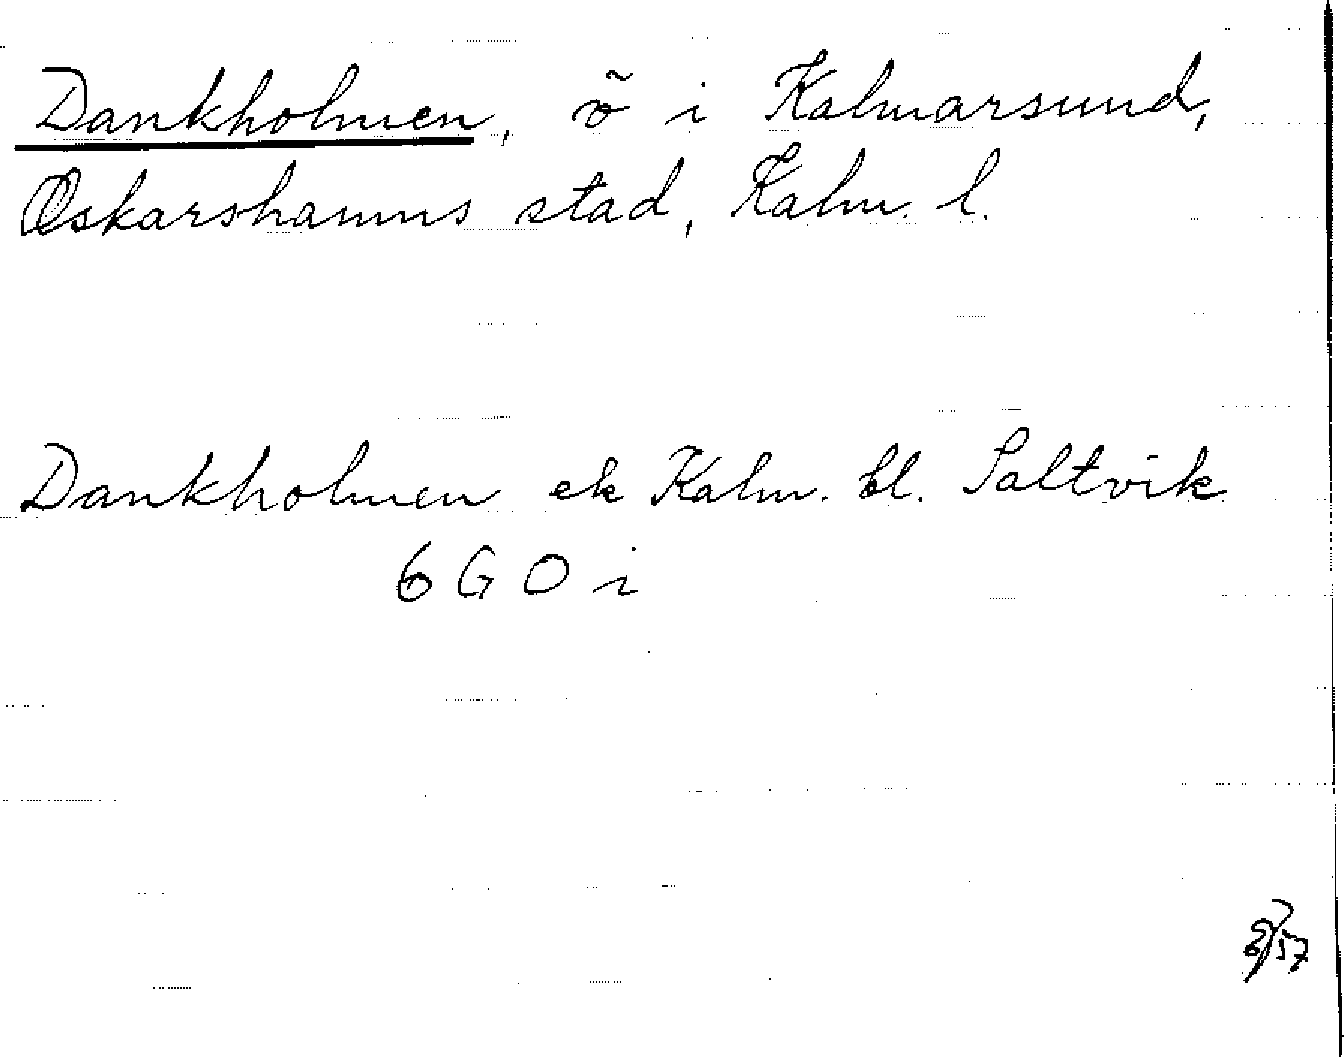 Dankholmen, ö i Kalmarsund,
Oskarshamns stad, Kalm. l.
Dankholmen ek Kalm. bl. Saltvik
6 G O i